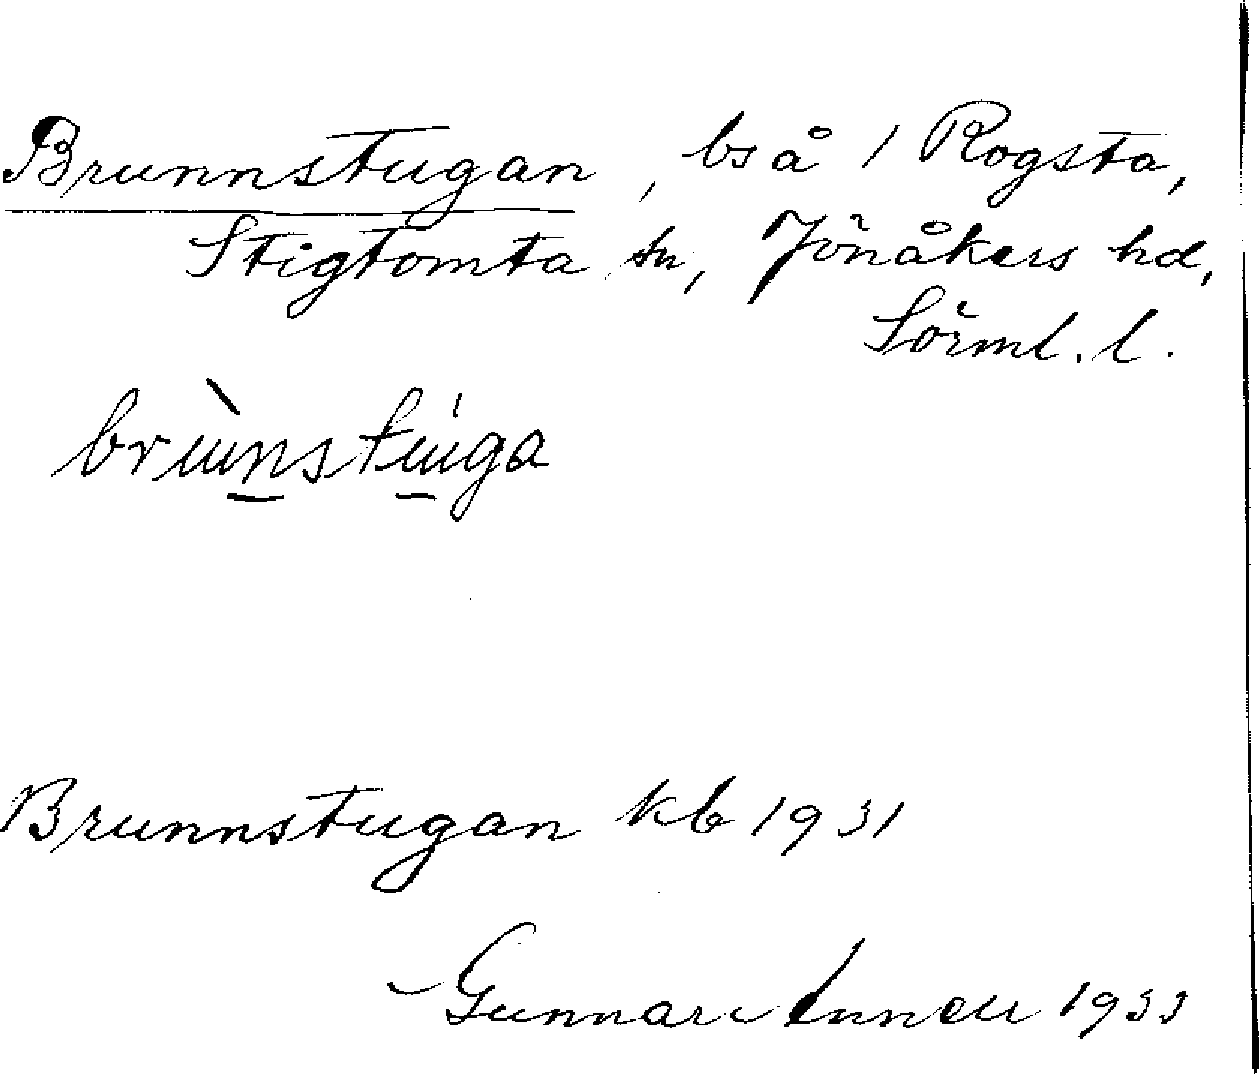 Brunnstugan, bs å 1 Rogsta,
Stigtomta sn, Jönåkers hd,
Sörml. l.
brùnstúga
Brunnstugan kb 1931
Gunnar Linnell 1933